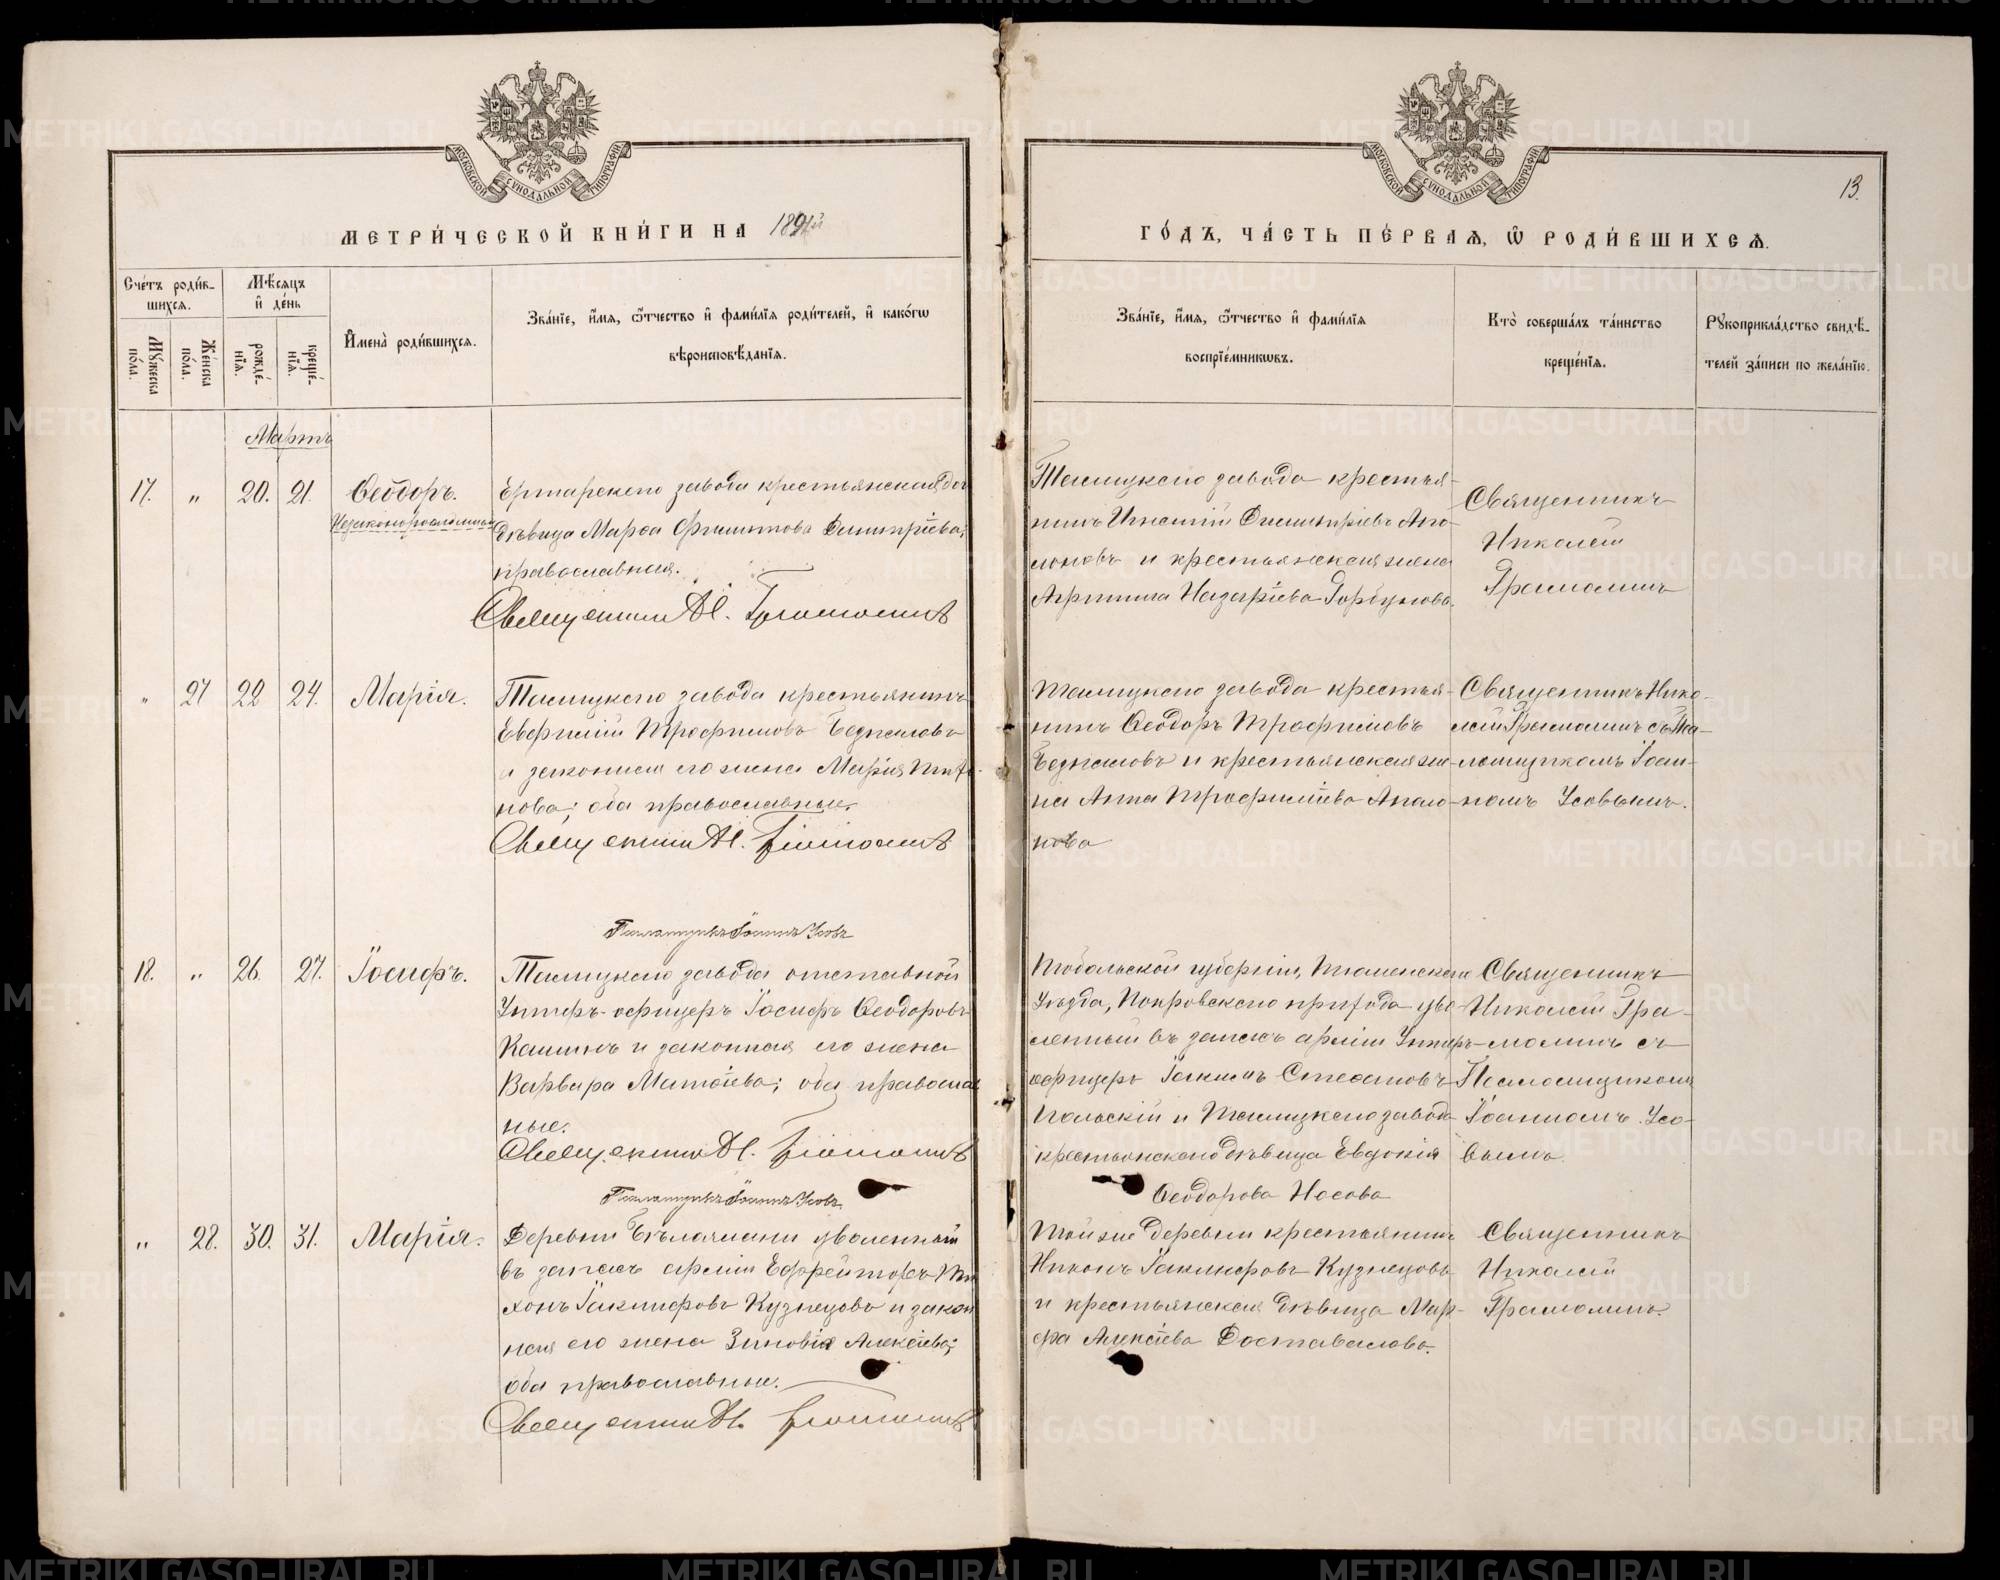 МЕТРИ́ЧЕСКОЙ КНИ́ГИ НА 1891й
ГО́ДЪ, ЧА́СТЬ ПЕ́РВАЯ, Ѡ РОДИ́ВШИХСЯ.
13.
МОСКОВСКОЙ СѴНОДАЛЬНОЙ ТИПОГРАФІИ
МОСКОВСКОЙ СѴНОДАЛЬНОЙ ТИПОГРАФІИ
Сче́тъ роди́в-
шихся.
Му́жеска по́ла.
Же́нска по́ла.
Мѣ́сяцъ
и̑ де́нь
рожде́-
нїя.
креще́-
нїя.
И̑мена̀ роди́вшихся.
Зва́нїе, и̑́мя, ѻ̑́тчество и̑ фами́лїя роди́телей, и̑ како́гѡ
вѣроисповѣ́данїя.
Зва́нїе, и̑́мя, ѻ̑́тчество и̑ фами́лїя
воспрїе́мникѡвъ.
Кто̀ соверша́лъ та́инство
креще́нїя.
Рукоприкла́дство свидѣ́-
телей за́писи по жела́нїю.
Мартъ
17. „ 20. 21. Ѳеодоръ.
Незаконорожденный
Ертарскаго завода крестьянская дочь
дѣвица Марѳа Филиппова Димитріева;
православная.
Священникъ Н. Грамолинъ
Талицкаго завода крестья-
нинъ Игнатій Димитріевъ Апо-
лоновъ и крестьянская жена
Агрипина Назаріева Горбунова.
Священникъ
Николай
Грамолинъ
„ 27 22 24. Марія.
Талицкаго завода крестьянинъ
Евфимій Трофимовъ Бедрисловъ
и законная его жена Марія
нова; оба православные.
Священникъ Н. Грамолинъ
Псаломщикъ Іоаннъ Усовъ
Талицкаго завода крестья-
нинъ Ѳеодоръ Трофимовъ
и крестьянская же-
на Анна Трофимова Аполо-
нова
Священникъ Нико-
лай Грамолинъ съ Пса-
ломщикомъ Іоан-
номъ Усовымъ.
18. „ 26. 27. Іосифъ.
Талицкаго завода отставной
Унтеръ-офицеръ Іосифъ Ѳеодоровъ
Кашинъ и законная его жена
Варвара Матѳіева; оба православ-
ные.
Священникъ Н. Грамолинъ
Псаломщикъ Іоаннъ Усовъ
Тобольской губерніи, Тюменскаго
Уѣзда, Покровскаго прихода уво-
ленный въ запасъ арміи Унтеръ-
офицеръ Іакимъ Стефановъ
Польскій и Талицкаго завода
крестьянская дѣвица Евдокія
Ѳеодорова Носова
Священникъ
Николай Гра-
молинъ съ
Псаломщикомъ
Іоанномъ Усо-
вымъ.
„ 28. 30. 31. Марія.
Деревни Бѣлоямки уволенный
въ запасъ арміи Ефрейторъ Ти-
хонъ Іакинфовъ Кузнецовъ и закон-
ная его жена Зиновія Алексіева;
оба православные.
Священникъ Н. Грамолинъ
Той же деревни крестьянинъ
Никонъ Іакинфовъ Кузнецовъ
и крестьянская дѣвица Мар-
фа Алексіева Доставалова.
Священникъ
Николай
Грамолинъ.
METRIKI.GASO-URAL.RU